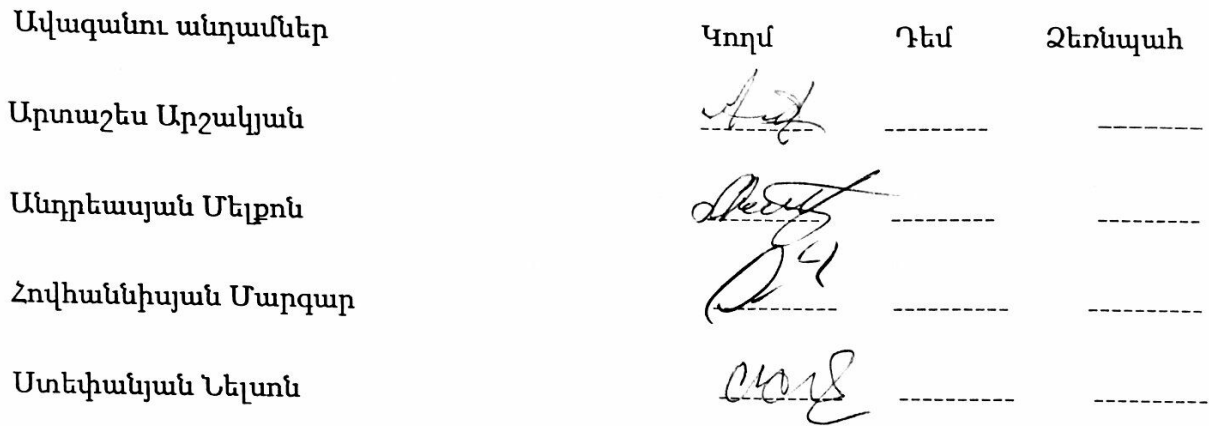 Ավագանու անդամներ Կողմ Դեմ Ձեռնպահ
Արտաշես Արշակյան
Անդրեասյան Մելքոն
Հովհաննիսյան Մարգար
Ստեփանյան Նելսոն